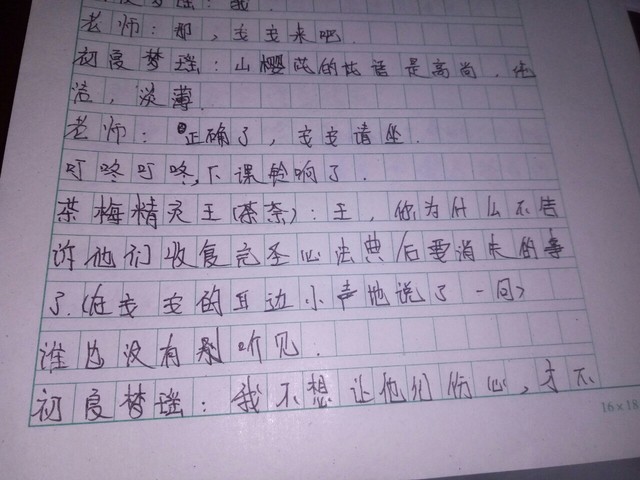 梦瑶：我.
老师：那，戋戋来吧.
初夏梦瑶：山樱花的花语是高尚，纯
洁，淡薄.
老师：正确了，戋戋请坐.
叮咚叮咚，下课铃响了.
茶梅精灵王(茶奈)：王，你为什么不告
诉他们收复完圣心法典后要消失的事
了.(在戋戋的耳边小声地说了一句)
谁也没有听见.
初夏梦瑶：我不想让他们伤心，才不
16×18